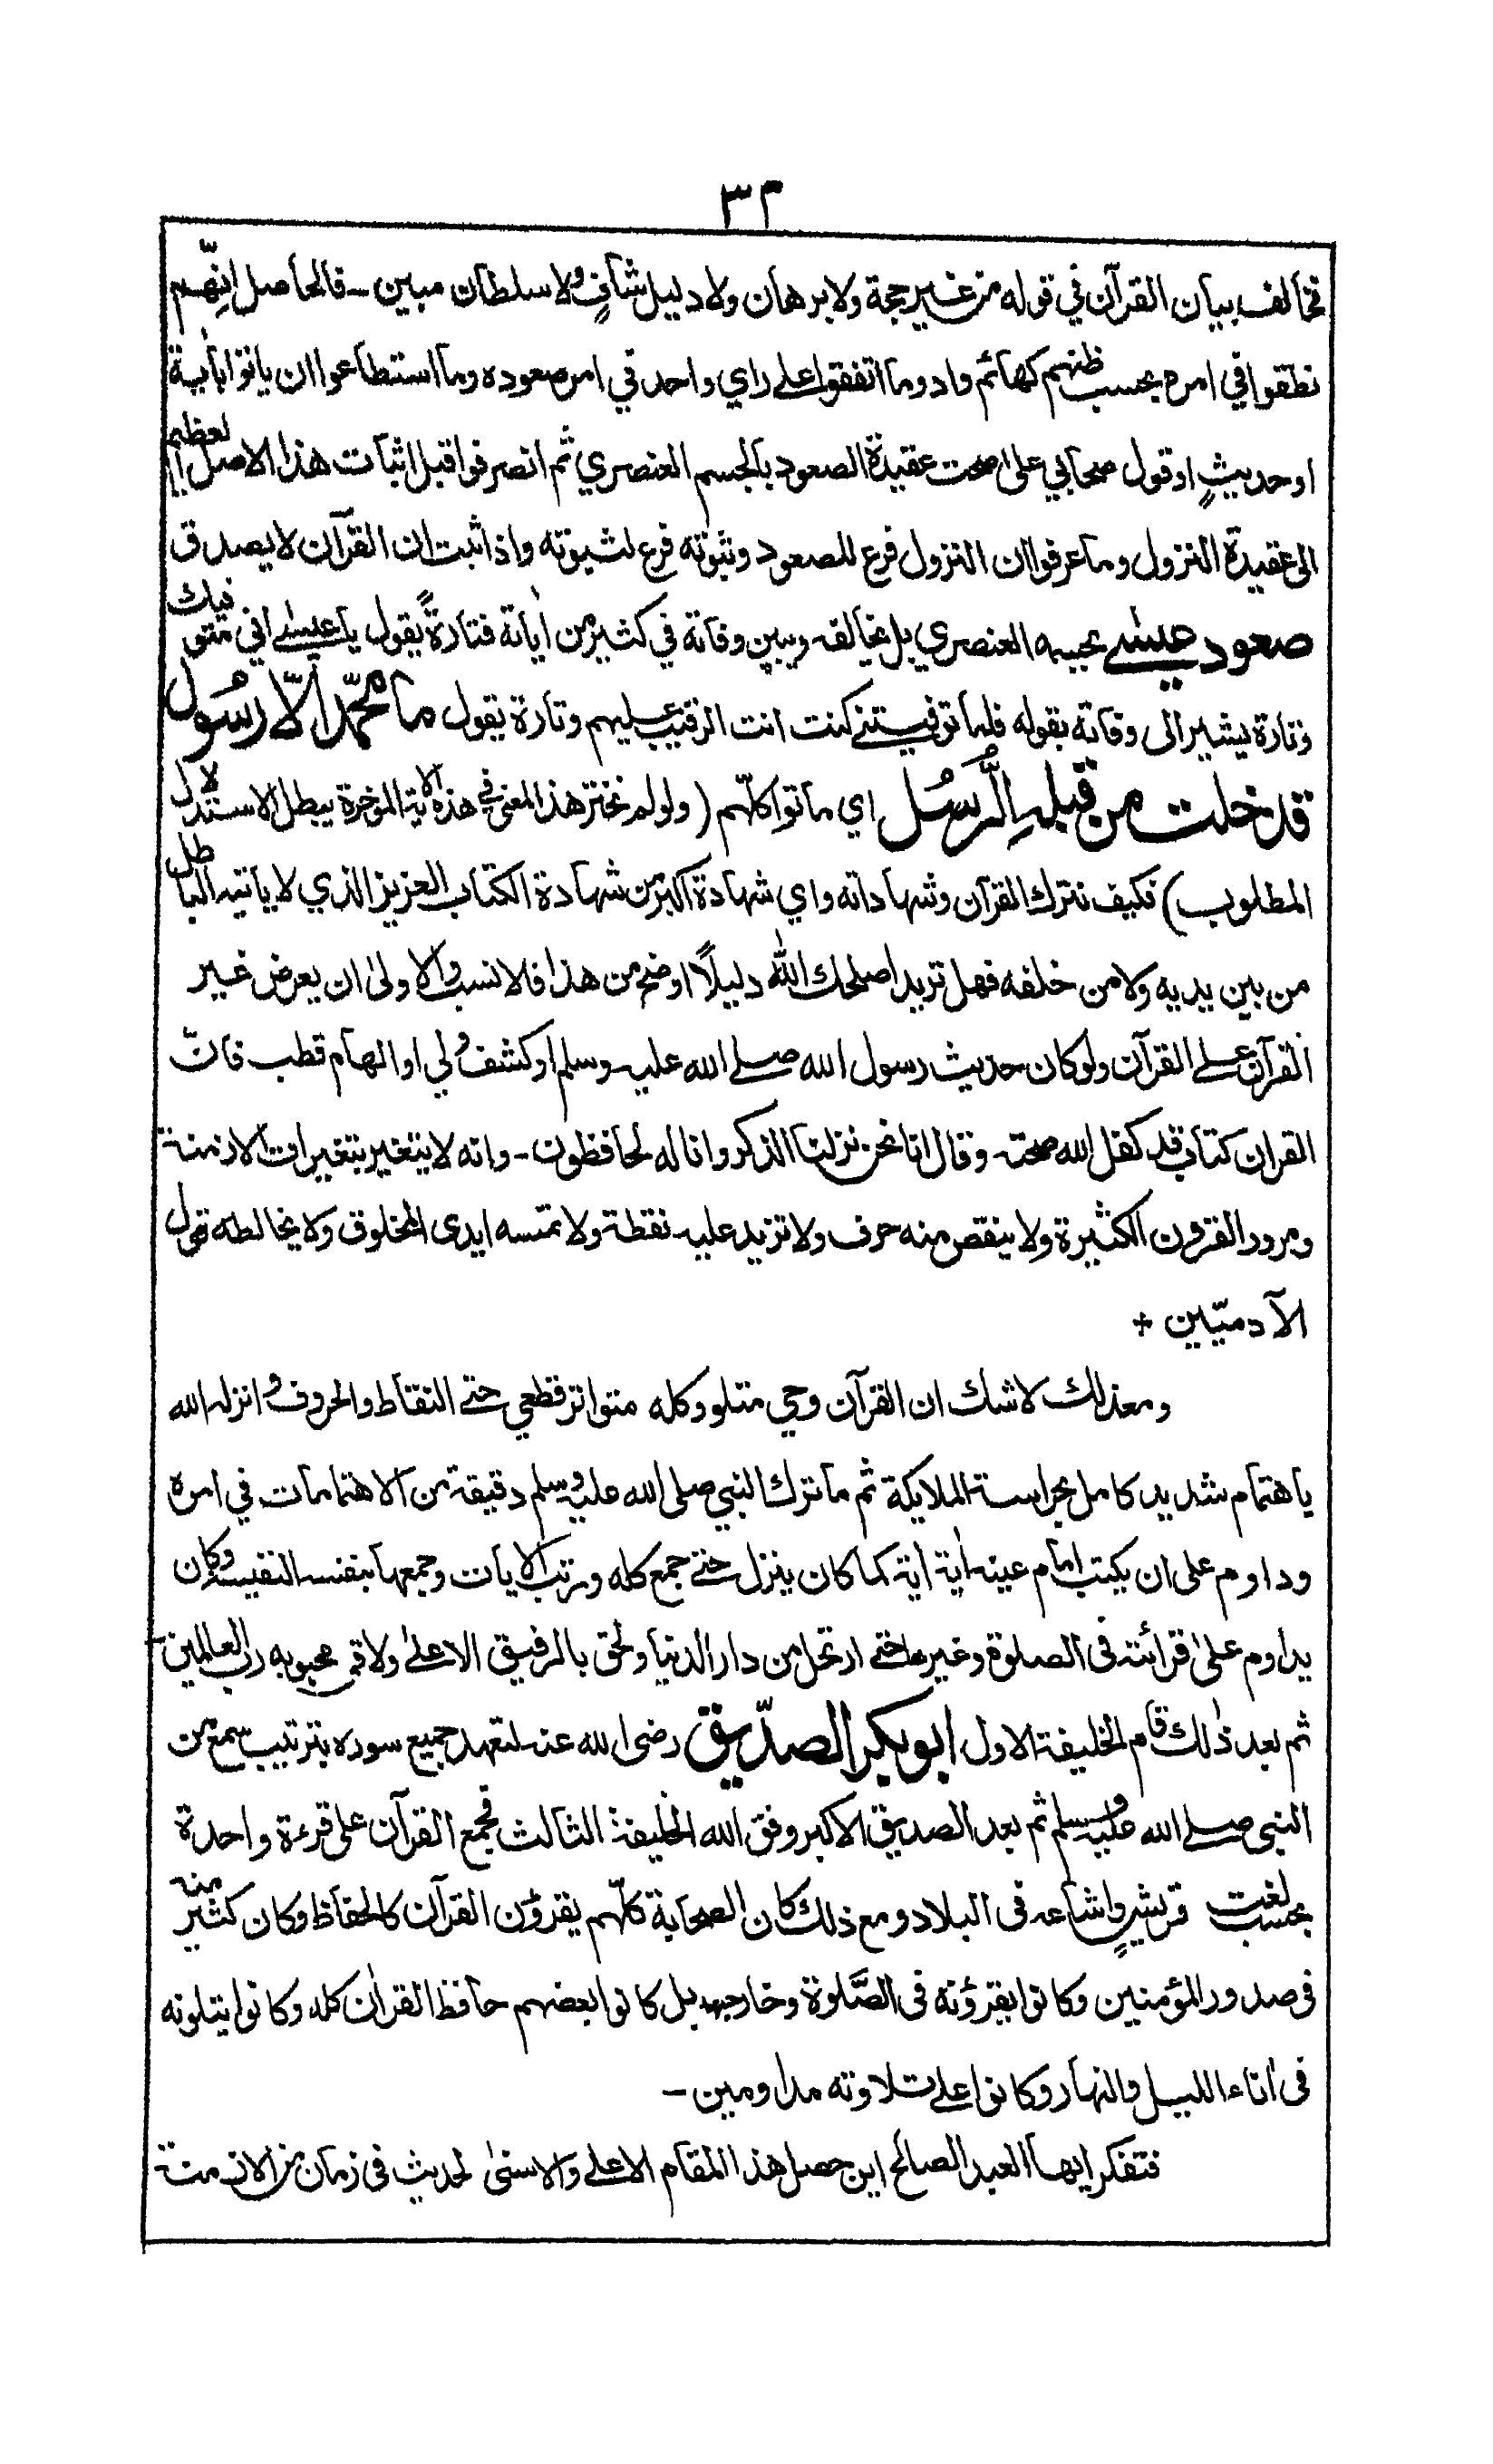 ٣٢
فخالف بيان القرآن في قوله من غير حجة ولا برهان ولا دليل شافٍ ولا سلطان مبين ـ فالحاصل انّهم
نطقوا في امره بحسب ظنهم كهائم واد وما اتفقوا على راي واحد في امر صعوده وما استطاعوا ان ياتوا بآية
او حديثٍ او قول صحابي على صحت عقيدة الصعود بالجسم العنصري ثم انصرفوا قبل اثبات هذا الاصل العظيم
الى عقيدة النزول وما عرفوا ان النزول فرع للصعود وثبوته فرع لثبوته واذا ثبت ان القرآن لا يصدق
صعود عيسى بجسمه العنصري بل يخالفه ويبين وفاته في كثير من اٰياته فتارةً يقول يا عيسٰى اني متوفيك
وتارة يشير الى وفاته بقوله فلما توفيتني كنت انت الرقيب عليهم وتارة يقول ما محمّد الّا رسُول
قد خلت من قبلهِ الرُّسُل اي ماتوا كلّهم ( ولو لم نختر هذا المعنى في هذه الآية المؤخرة يبطل الاستدلال
المطلوب) فكيف نترك القرآن وشهاداته واي شهادة اكبر من شهادة الكتاب العزيز الذي لا ياتيه الباطل
من بين يديه ولا من خلفه فهل تريد اصلحك اللّٰه دليلًا اوضح من هذا فالانسب والاولىٰ ان يعرض غير
القرآن على القرآن ولو كان حديث رسول الله صلى الله عليه وسلم او كشف ولي او الهام قطب فانّ
القران كتاب قد كفل الله صحته وقال انا نحن نزلنا الذكر وانا له لحافظون ـ وانه لا يتغير بتغيرات الازمنة
ومرور القرون الكثيرة ولا ينقص منه حرف ولا تزيد عليه نقطة ولا تمسه ايدى المخلوق ولا يخالطه قول
الآدميّين +
ومعذلك لا شك ان القرآن وحي متلو وكله متواتر قطعي حتى النقاط والحروف وانزله الله
باهتمام شديد كامل بحراسة الملايكة ثم ما ترك النبي صلى الله عليه وسلم دقيقة من الاهتمامات في امره
وداوم على ان يكتب امام عينه اٰية اٰية كما كان ينزل حتى جمع كله ورتب الايات وجمعها بنفسه النفيسة وكان
يداوم علىٰ قرائته فى الصلوة وغيرها حتى ارتحل من دار الدنيا ولحق بالرفيق الاعلىٰ ولاقى محبوبه رب العالمين ـ
ثم بعد ذٰلك قام الخليفة الاول ابو بكر الصدّيق رضى الله عنه لتعهد جميع سوره بترتيب سمع من
النبى صلى الله عليه وسلم ثم بعد الصديق الاكبر وفق الله الخليفة الثالث فجمع القرآن على قرءة واحدة
بحسب لغت قريشٍ واشاعه فى البلاد ومع ذلك كان الصحابة كلّهم يقرؤن القرآن كالحفاظ وكان كثير منه
فى صدور المؤمنين وكانوا يقرؤنه فى الصّلوة وخارجها بل كانوا بعضهم حافظ القراٰن كله وكانوا يتلونه
فى اٰناء الليل والنهار وكانوا على تلاوته مداومين ـ
فتفكر ايها العبد الصالح اين حصل هذا المقام الاعلى والاسنىٰ لحديث فى زمان من الازمنة